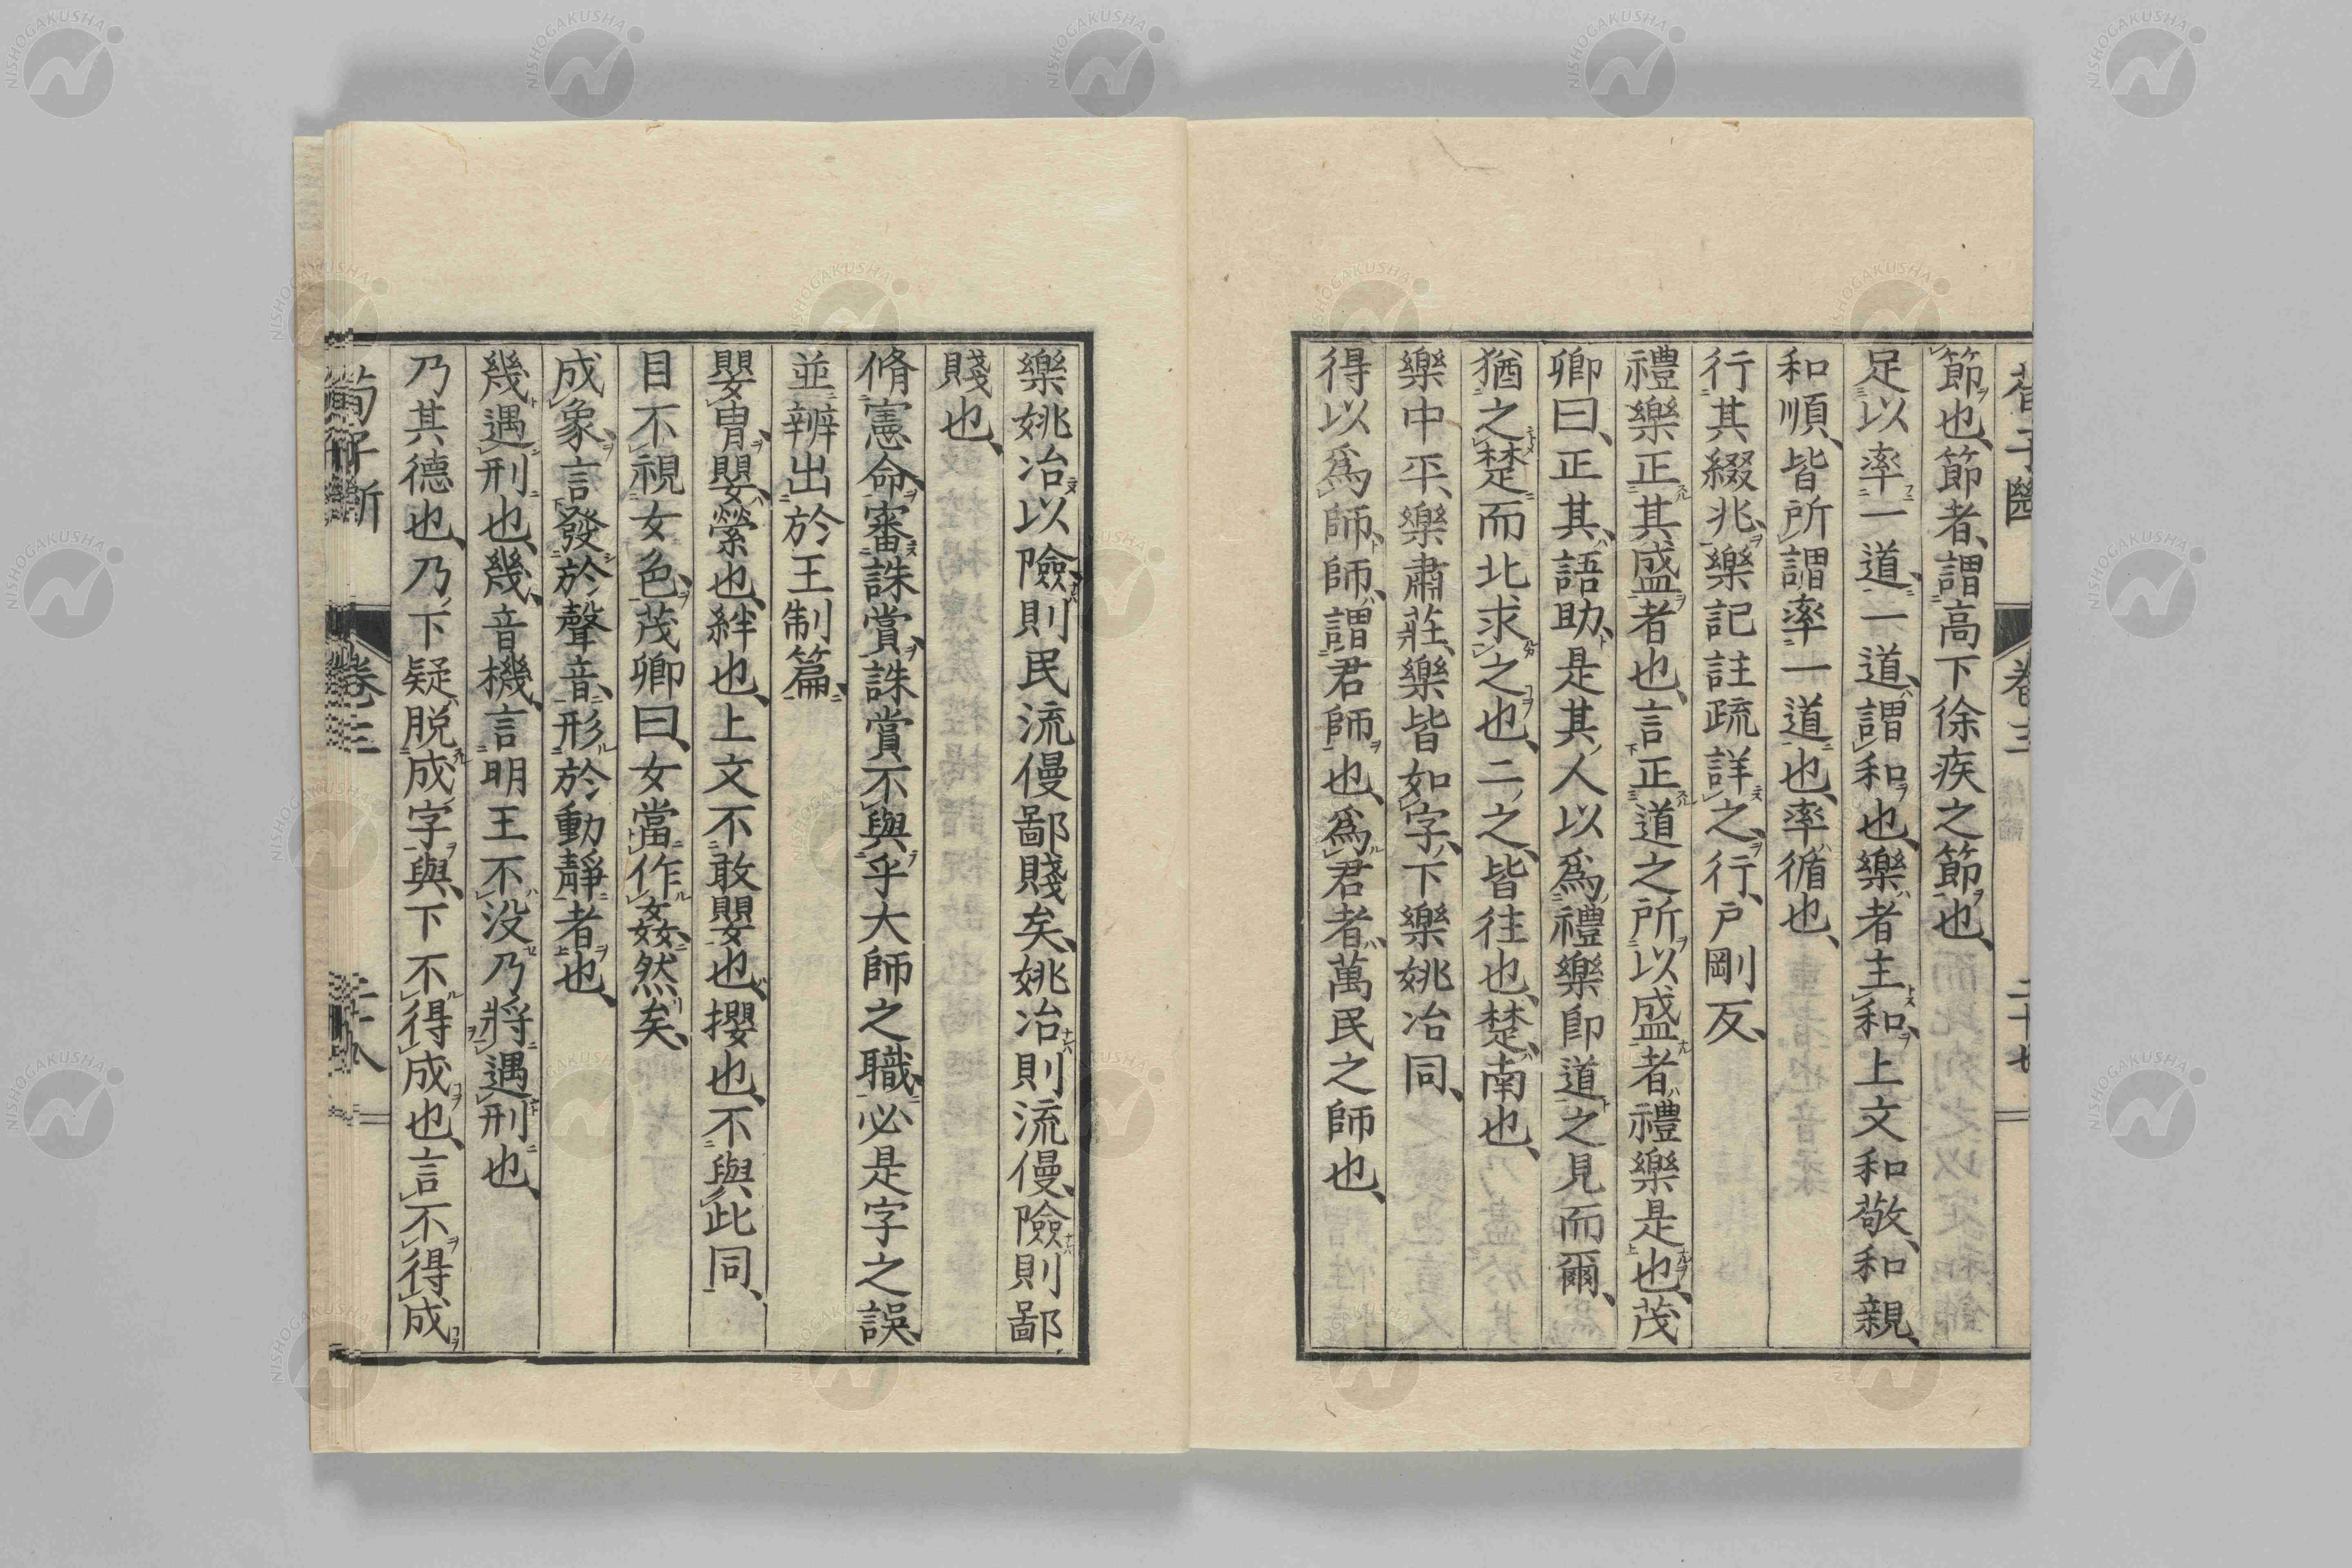 節也、節者、謂高下徐疾之節也、
足以率一道、一道、謂和也、樂者主和、上文和敬、和親、
和順、皆所謂率一道也、率循也、
行其綴兆、樂記註疏詳之、行、戶剛反、
禮樂正其盛者也、言正道之所以盛者禮樂是也、茂
卿曰、正其、語助、是其人以爲禮樂卽道之見而爾、
猶之楚而北求之也、二之、皆往也、楚、南也、
樂中平、樂肅莊、樂皆如字、下樂姚冶同、
得以爲師、師、謂君師也、爲君者、萬民之師也、
樂姚冶以險、則民流僈鄙賤矣、姚冶則流僈、險則鄙
賤也、
脩憲命、審誅賞、誅賞不與乎大師之職、必是字之誤、
並辨出於王制篇、
嬰冑、嬰、縈也、絆也、上文不敢嬰也、攖也、不與此同、
目不視女色、茂卿曰、女當作姦、然矣、
成象、言發於聲音、形於動靜者也、
幾遇刑也、幾、音機、言明王不没乃將遇刑也、
乃其德也、乃下疑脱成字與、下不得成也、言不得成
荀子斷 卷三